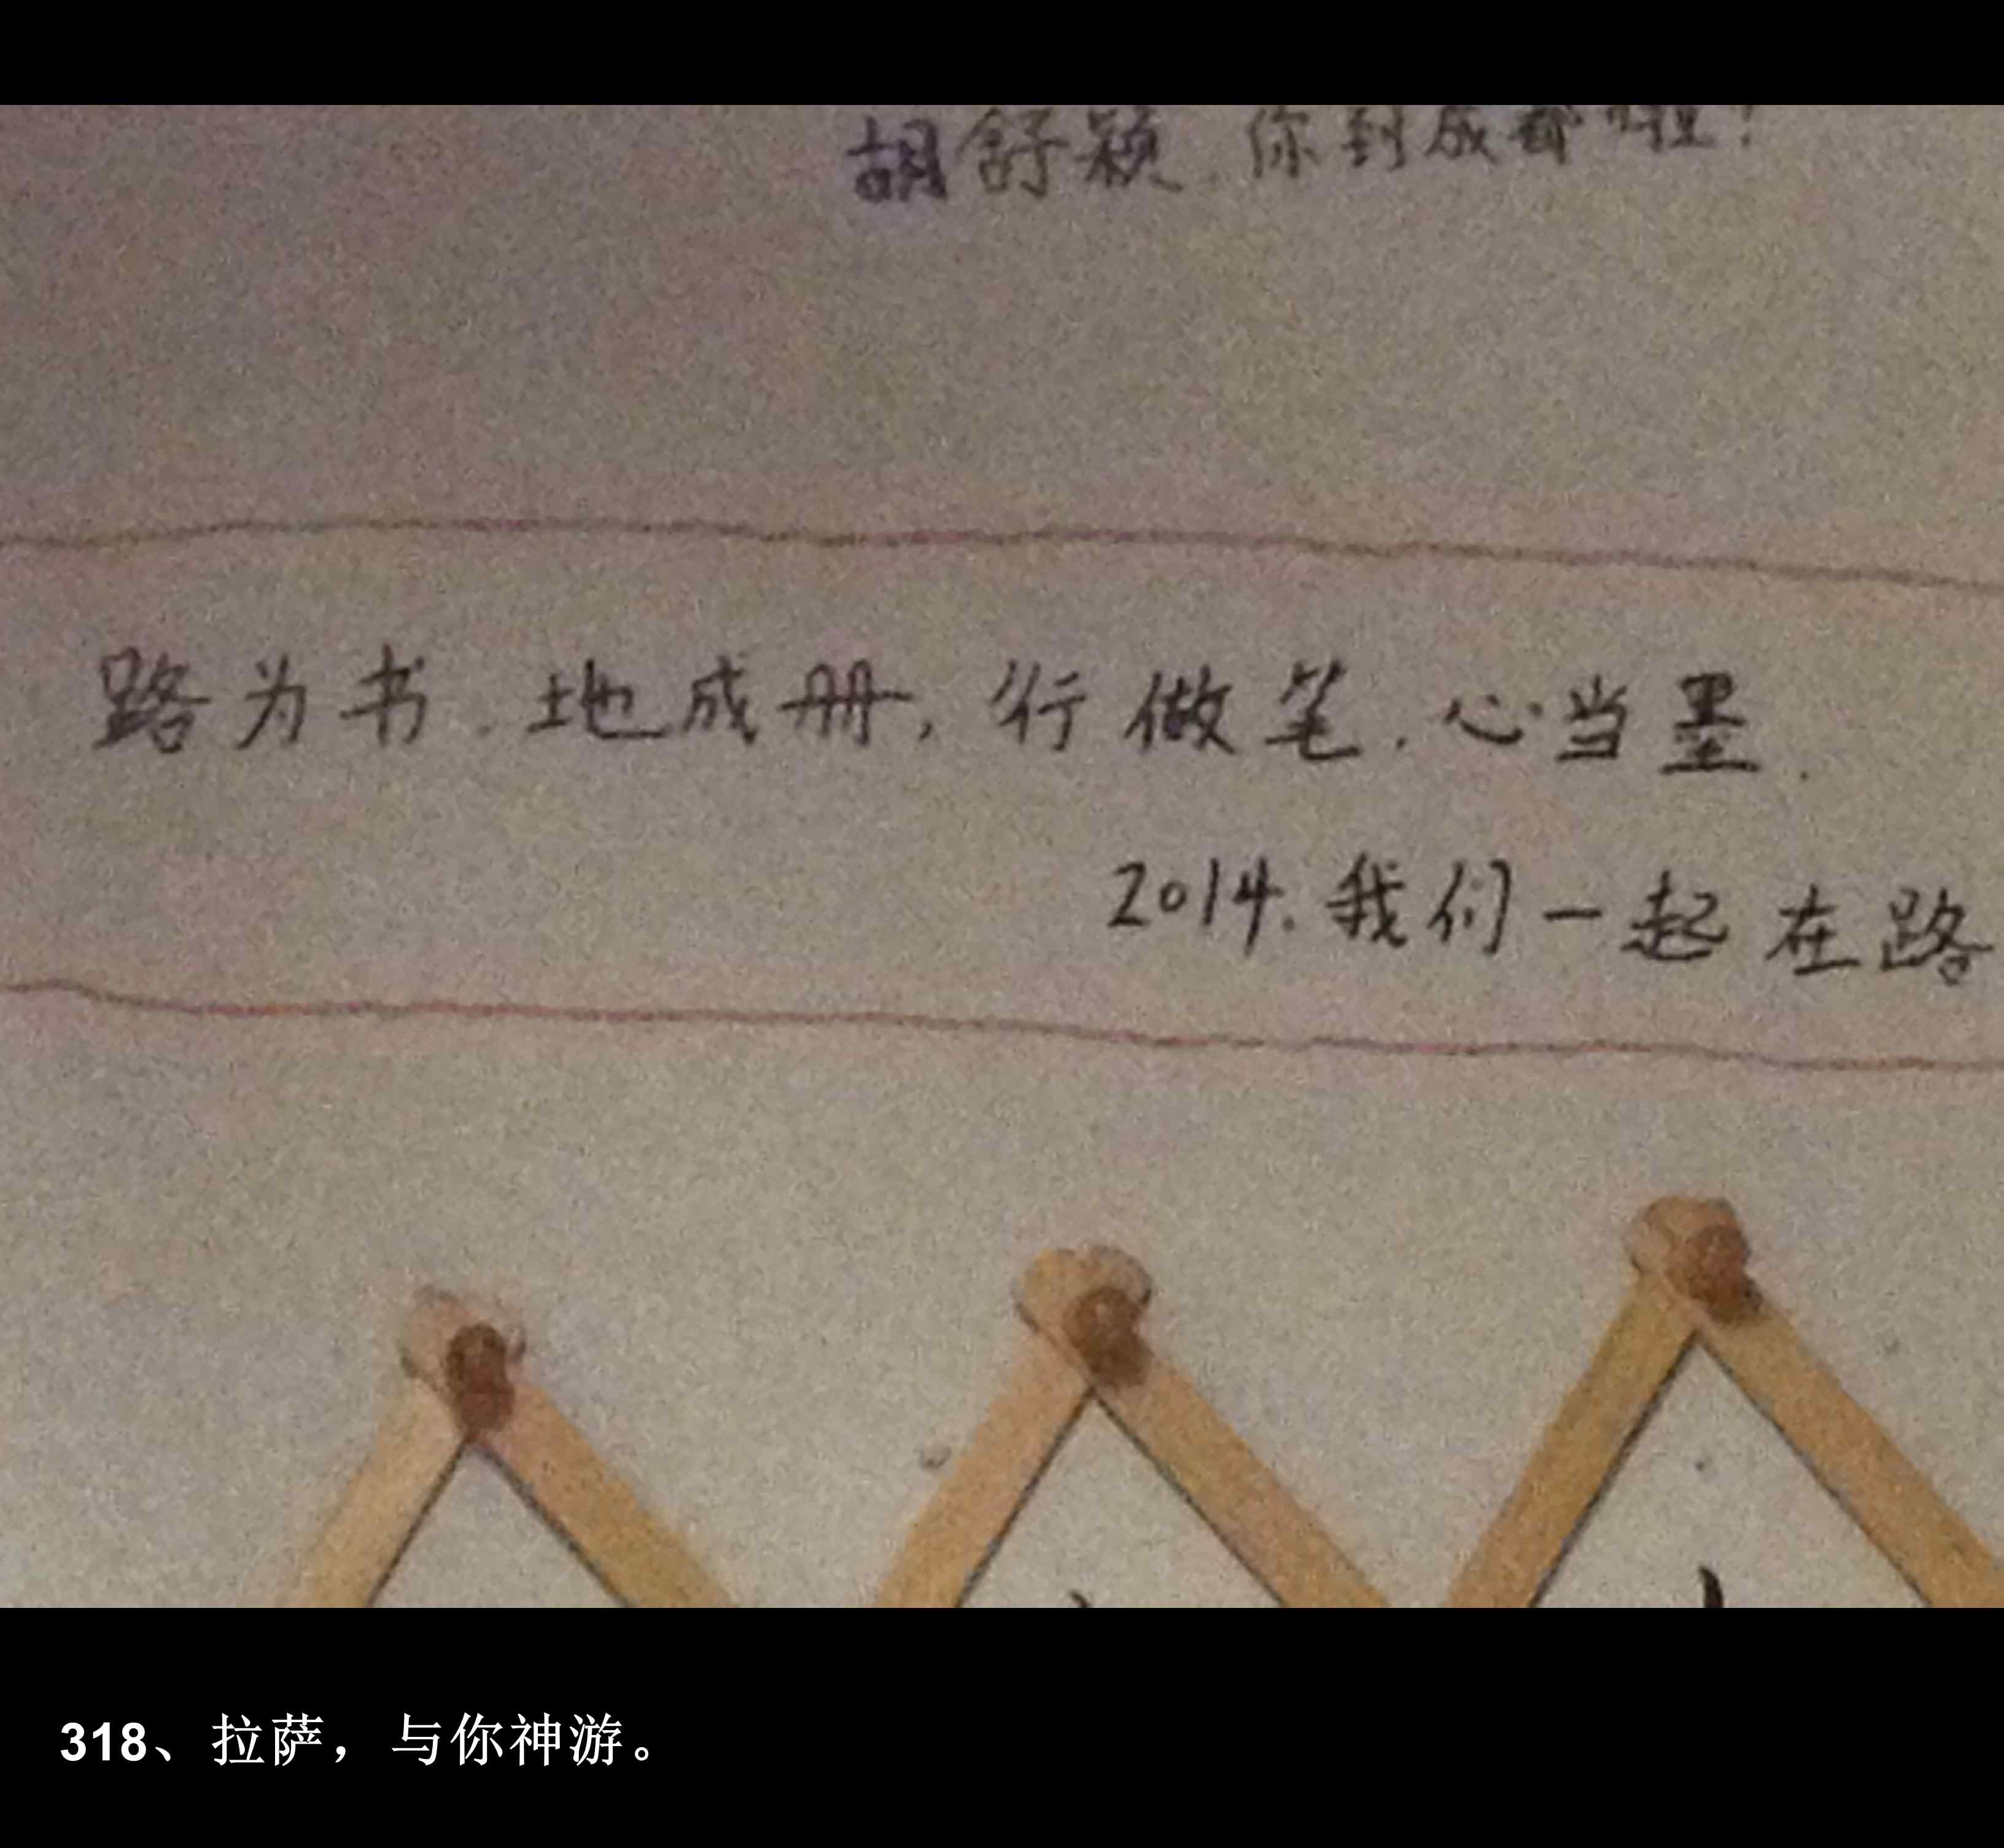 胡舒颖.你到成都啦!
路为书.地成册,行做笔.心当墨.
2014.我们一起在路
318、拉萨，与你神游。